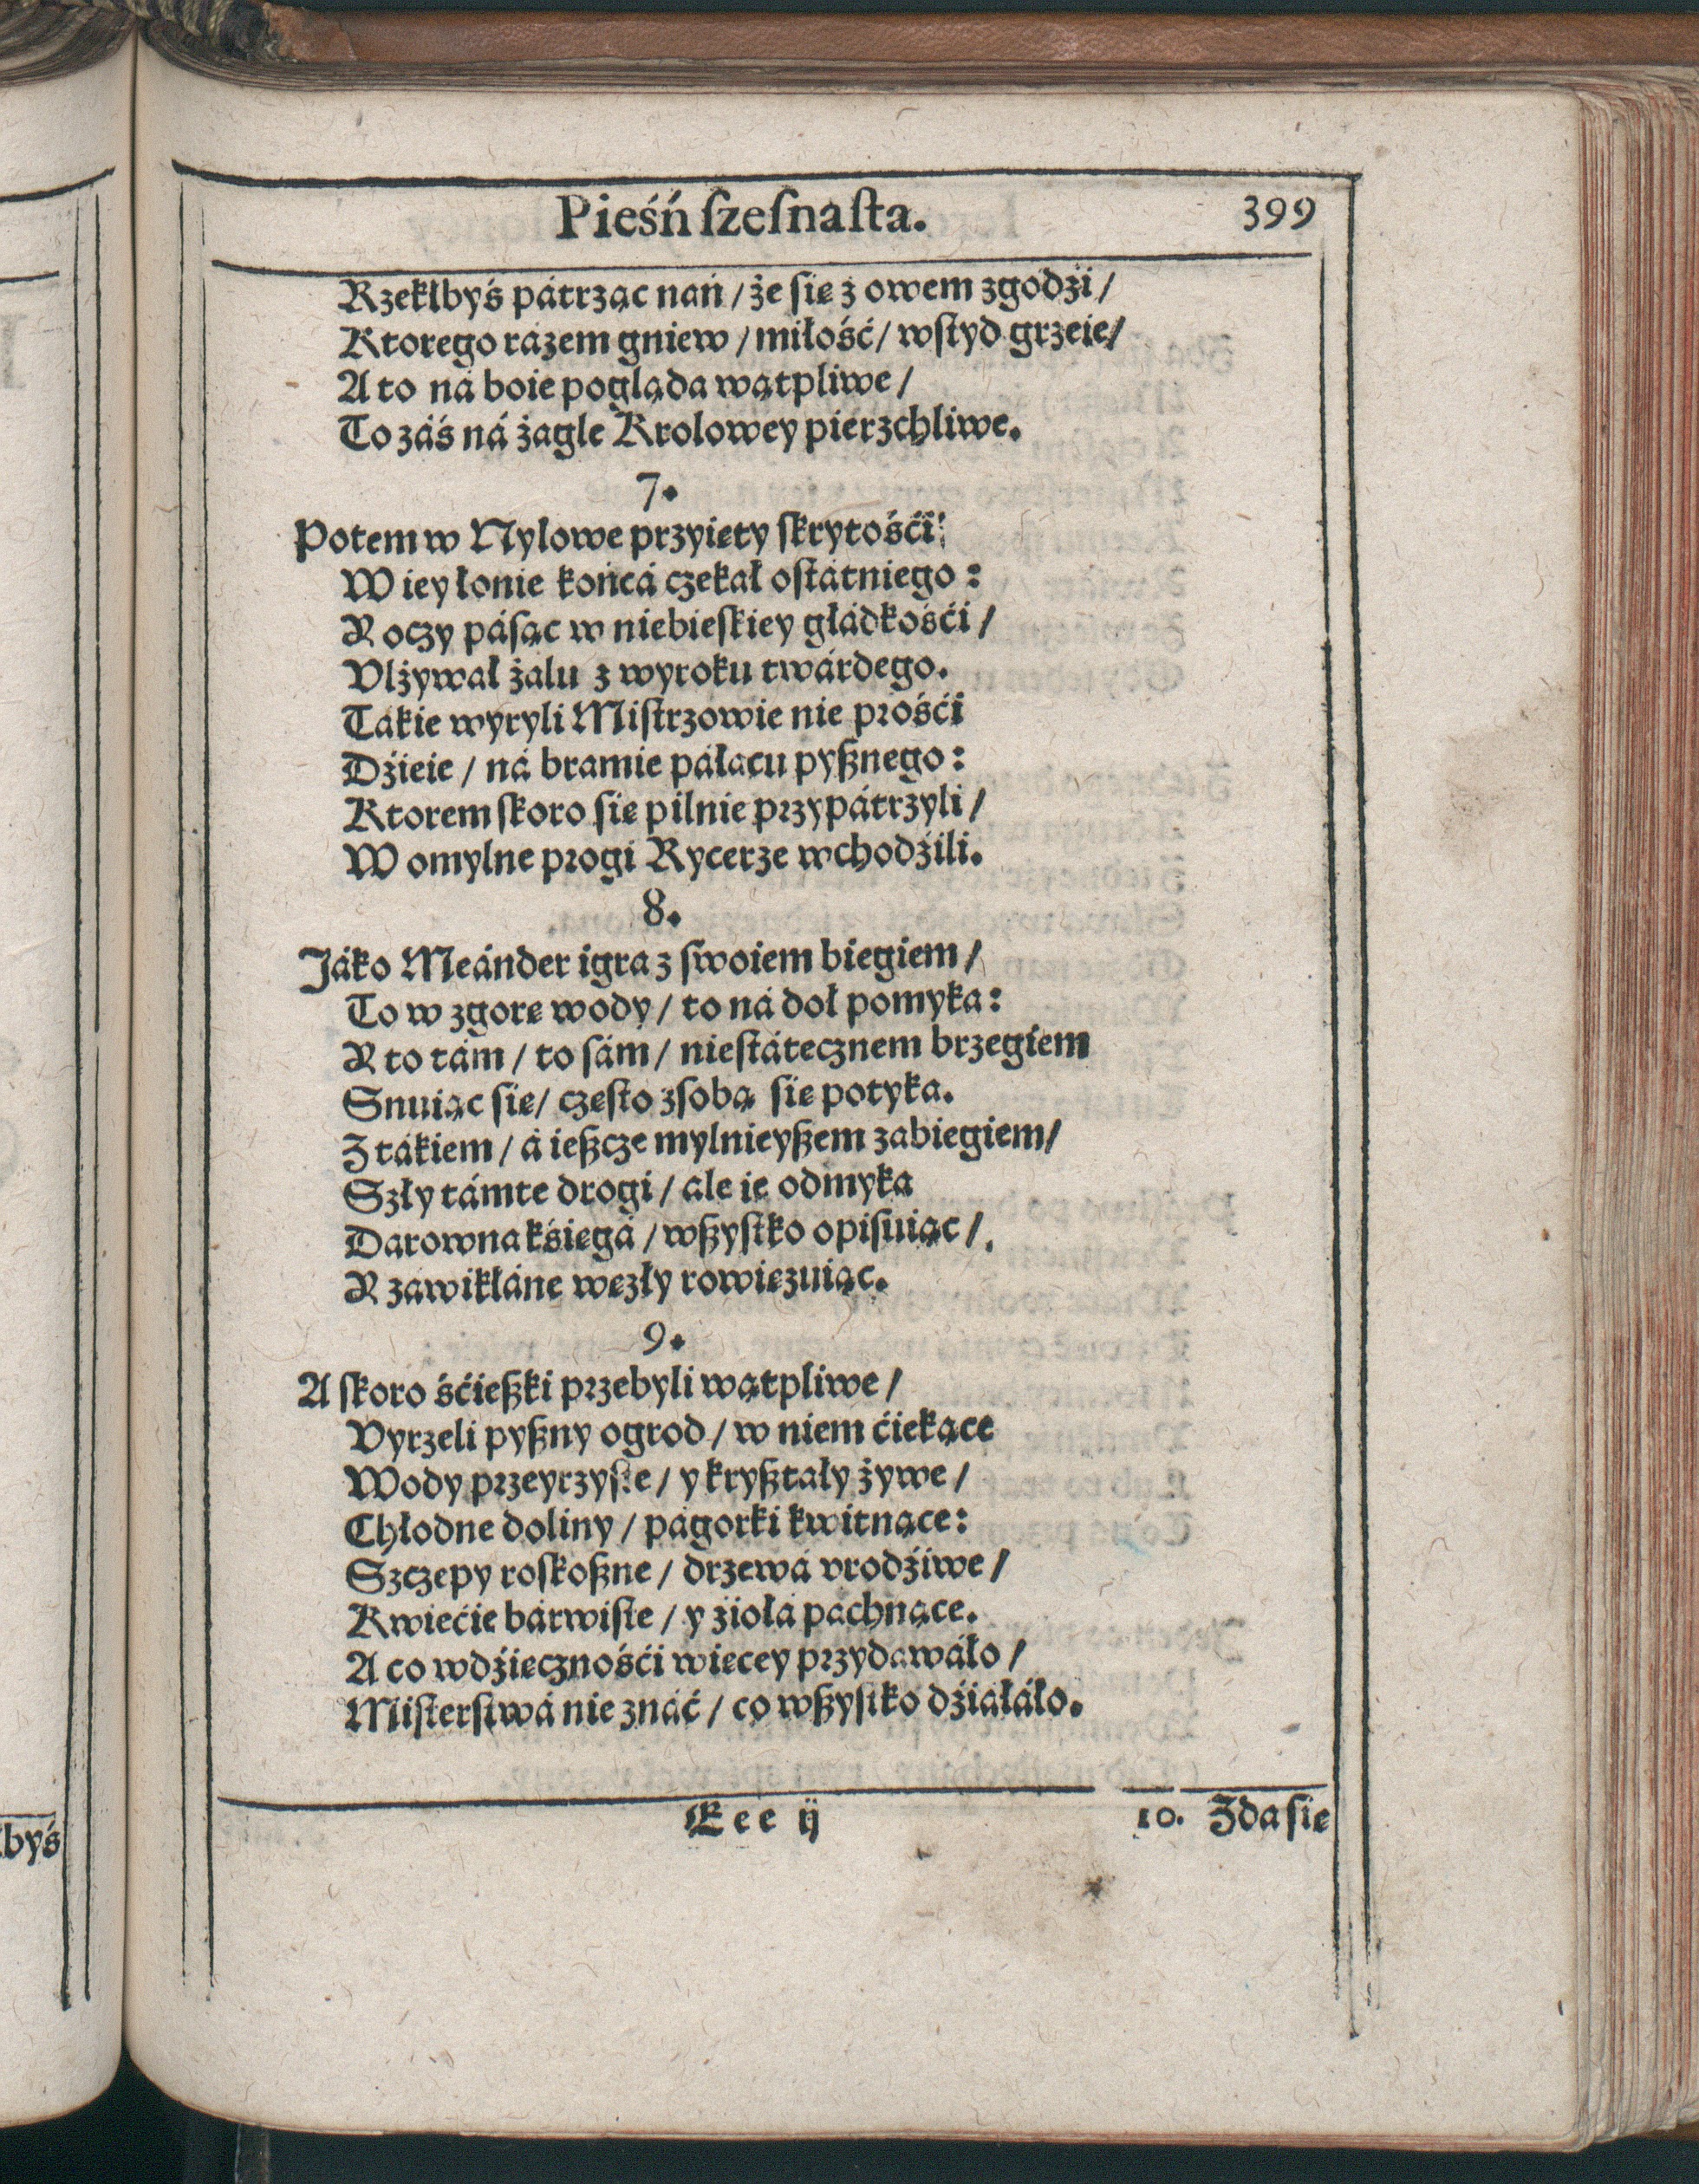 Pieśń ſzeſnaſta. 399
Rzekłbyś pátrząc nań / że ſię z owem zgodźi /
Ktorego rázem gniew / miłość / wſtyd grzeie /
A to ná boie pogląda wątpliwe /
To záś ná żagle Krolowey pierzchliwe.
7.
Potem w Nylowe przyięty ſkrytośći
W iey łonie końcá czekał oſtátniego:
A oczy páſąc w niebieſkiey głádkośći /
Vlżywał żalu z wyroku twárdego.
Takie wyryli Miſtrzowie nie prośći
Dźieie / ná bramie páłacu pyßnego:
Ktorem ſkoro ſię pilnie przypátrzyli /
W omylne progi Rycerze wchodźili.
8.
Jáko Meánder igra z ſwoiem biegiem /
To w zgorę wody / to ná doł pomyka:
A to tám / to ſám / nieſtátecznem brzegiem
Snuiąc ſię / częſto z ſobą ſię potyka.
Z tákiem / á ießcze mylnieyßem zabiegiem /
Szły támte drogi / ale ie odmyka
Darowna kśięgá / wßyſtko opiſuiąc /
A záwikłáne węzły rowięzuiąc.
9.
A ſkoro śćießki przebyli wątpliwe /
Vyrzeli pyßny ogrod / w niem ćiekące
Wody przeyrzyſte / y kryßtały żywe /
Chłodne doliny / págorki kwitnące:
Szczepy roſkoßne / drzewá vrodźiwe /
Kwiećie bárwiſte / y źiołá pachnące.
A co wdźięcznośći więcey przydawáło /
Miſterſtwá nie znáć / co wßyſtko dźiałáło.
Eee ij 10. Zda ſię
byś